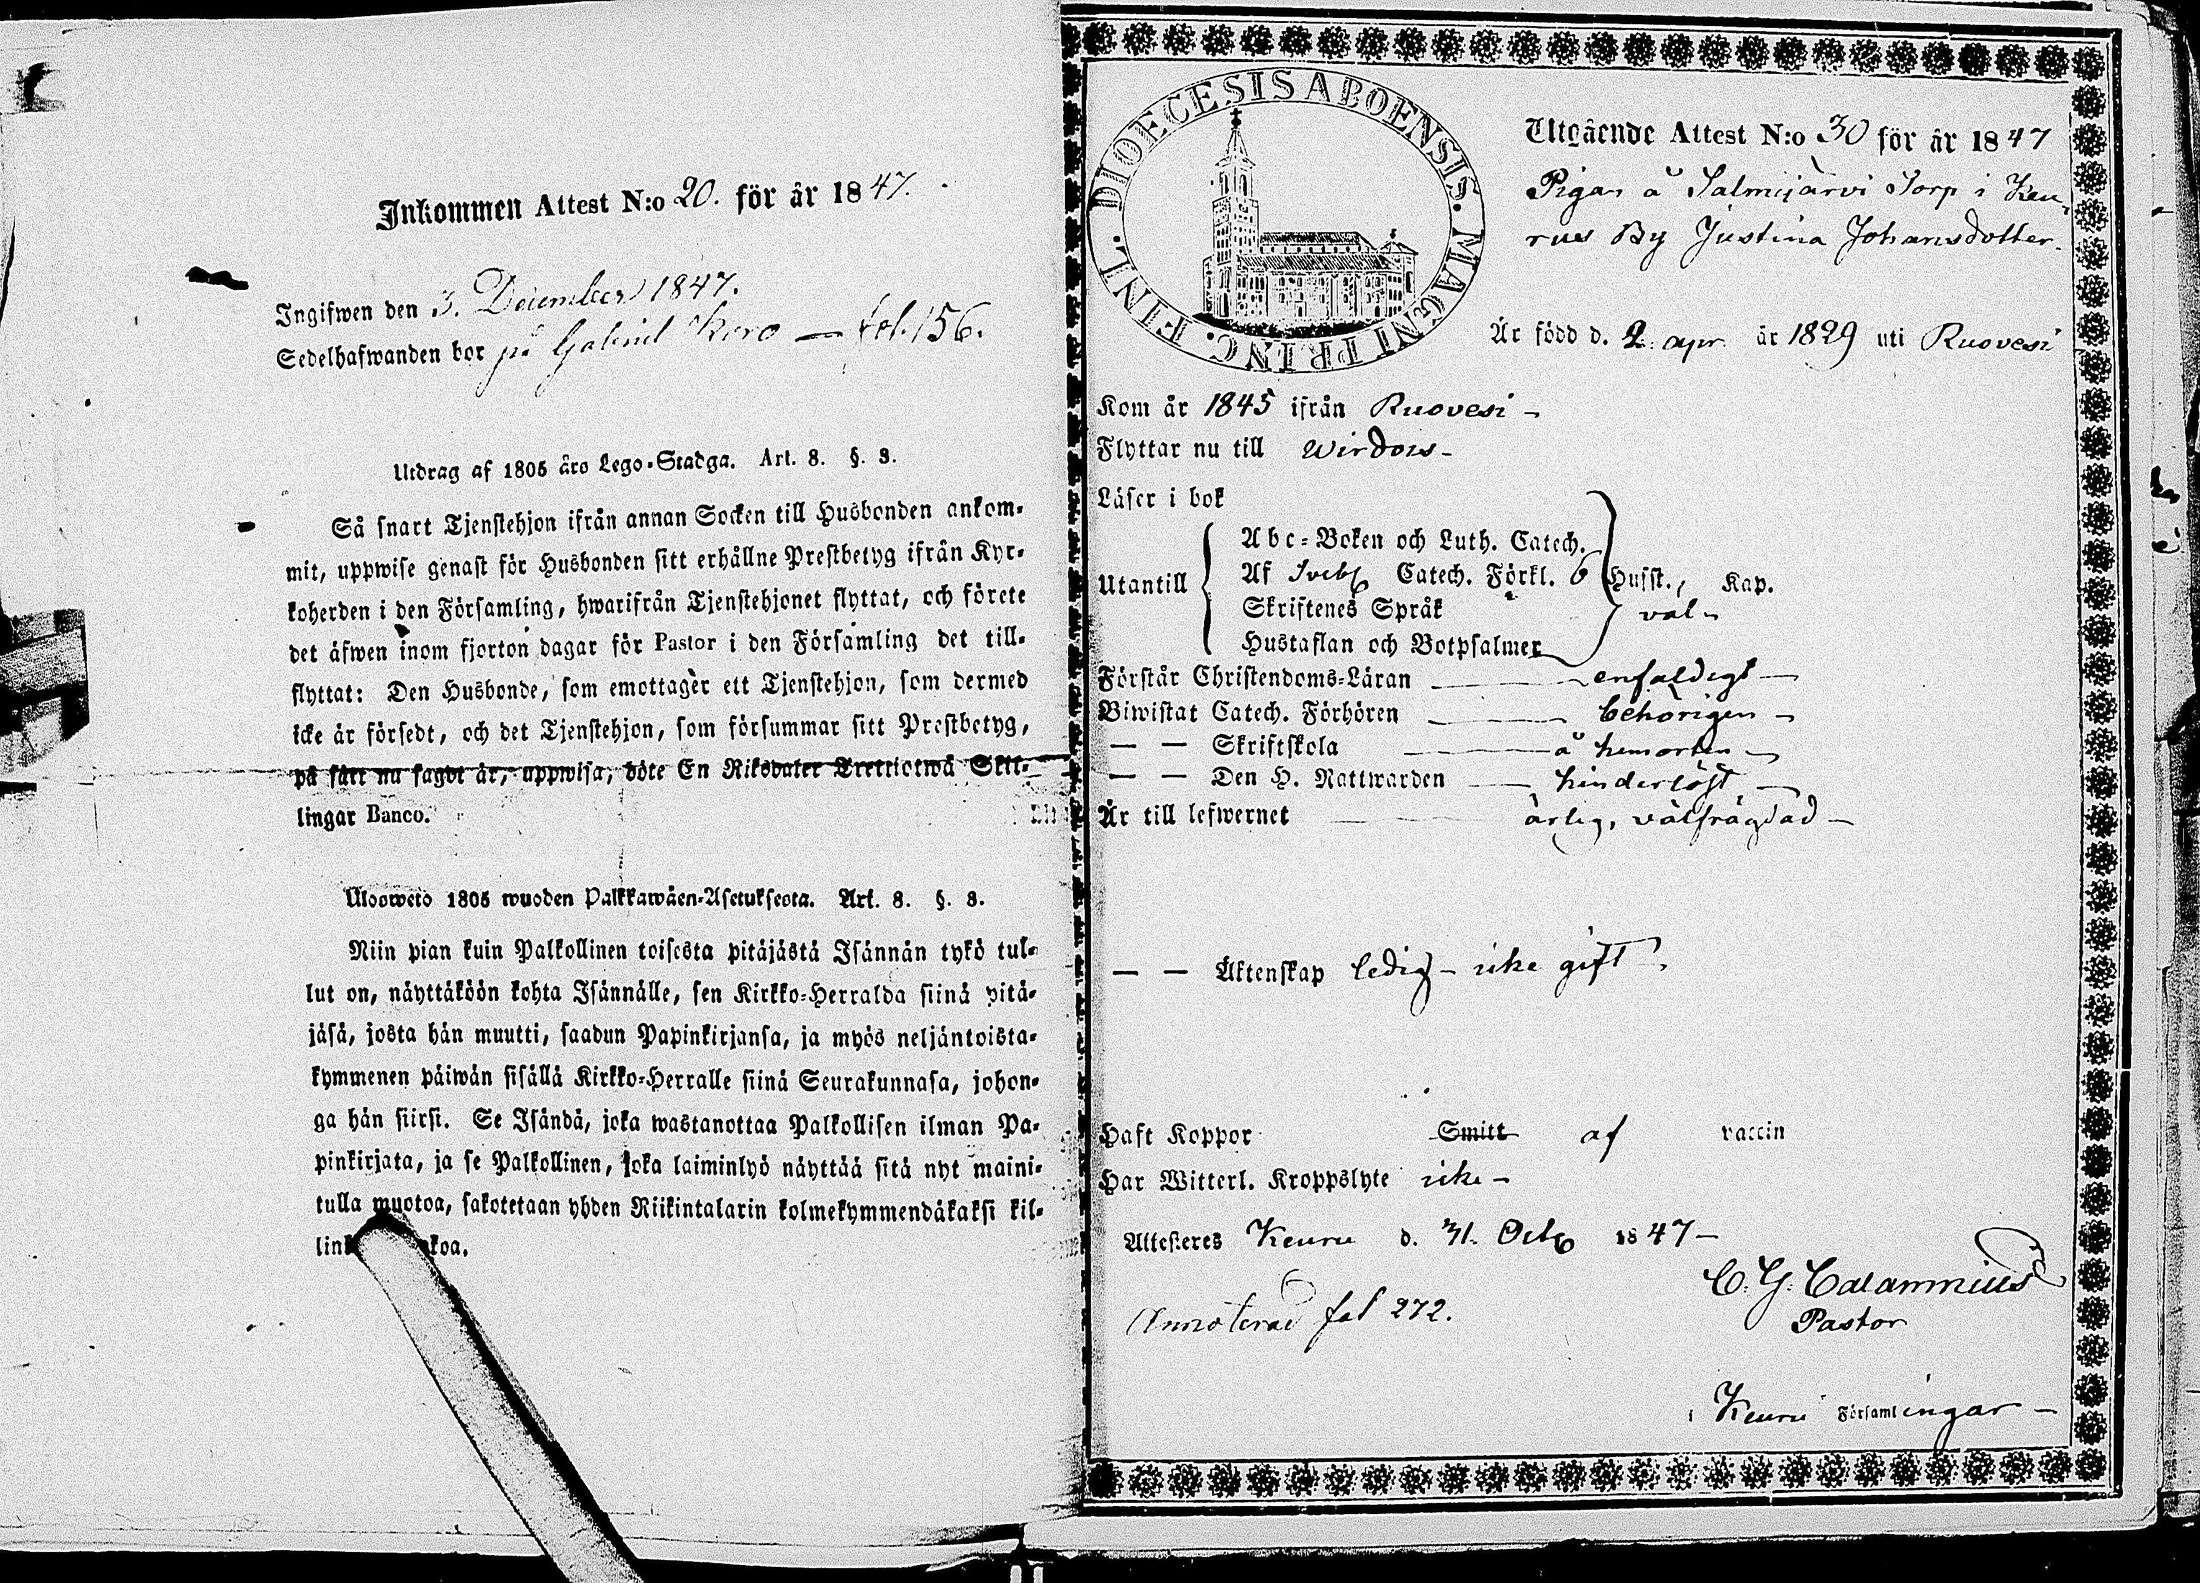 Inkommen Attest N:o 20. för år 1847.
Ingifwen den 3. December 1847.
Sedelhafwanden bor på Gabriel Kero — fol. 156.
Utdrag af 1805 års Lego-Stadga. Art. 8. §. 8.
Så snart Tjenstehjon ifrån annan Socken till Husbonden ankom-
mit, uppwise genast för Husbonden sitt erhållne Prestbetyg ifrån Kyr-
koherden i den Församling, hwarifrån Tjenstehjonet flyttat, och förete
det äfwen inom fjorton dagar för Pastor i den Församling det till-
flyttat: Den Husbonde, som emottager ett Tjenstehjon, som dermed
icke är försedt, och det Tjenstehjon, som försummar sitt Prestbetyg,
på sätt nu sagdt är, uppwisa, böte En Riksdaler Trettiotwå Skil-
lingar Banco.
Ulosweto 1805 wuoden Palkkawäen-Asetuksesta. Art. 8. §. 8.
Niin pian kuin Palkollinen toisesta pitäjästä Isännän tykö tul-
lut on, näyttäköön kohta Isännälle, sen Kirkko-Herralda siinä pitä-
jäsä, josta hän muutti, saadun Papinkirjansa, ja myös neljäntoista-
kymmenen päiwän sisällä Kirkko-Herralle siinä Seurakunnasa, johon-
ga hän siirsi. Se Isändä, joka wastanottaa Palkollisen ilman Pa-
pinkirjata, ja se Palkollinen, joka laiminlyö näyttää sitä nyt maini-
tulla muotoa, sakotetaan yhden Riikintalarin kolmekymmendäkaksi kil-
DIOECESIS ABOENSIS. MAGNI PRINC. FINL.
Utgående Attest N:o 30 för år 1847
Pigan å Salmijärvi Torp i Keu-
rus By Justina Johansdotter.
Är född d. 2. apr. år 1829 uti Ruovesi
Kom år 1845 ifrån Ruovesi -
Flyttar nu till Wirdois -
Läser i bok
Utantill
Abc-Boken och Luth. Catech.
Af Svebs Catech. Förkl. 6 Husst., Kap.
Skriftenes Språk val -
Hustaflan och Botpsalmer
Förstår Christendoms-Läran — enfaldigt —
Biwistat Catech. Förhören — behörigen -
— — Skriftskola — å hemorten —
— — Den H. Nattwarden — hinderlöst —
Är till lefwernet — ärlig, välfrägdad —
— — Äktenskap ledig - icke gift.
Haft Koppor Smitt af vaccin
Har Witterl. Kroppslyte icke -
Attesteres Keuru d. 31. Octb 1847 -
C. G. Calamnius
Pastor
Annoterad fol 272.
i Keuru Församlingar —